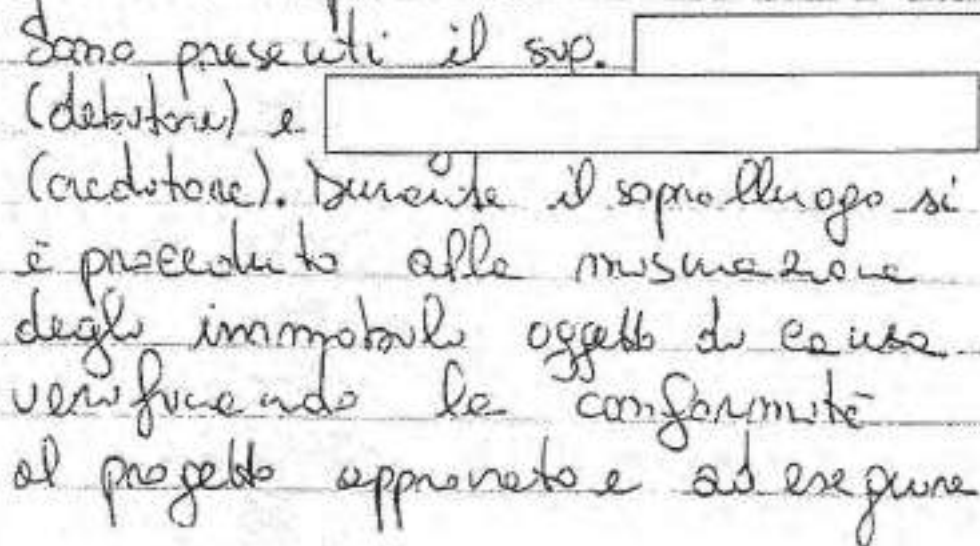 Sono presenti il sig.
(debitore) e
(creditore). Durante il sopralluogo si
è proceduto alla misurazione
degli immobili oggetto di causa
verificando la conformità
al progetto approvato e ad eseguire